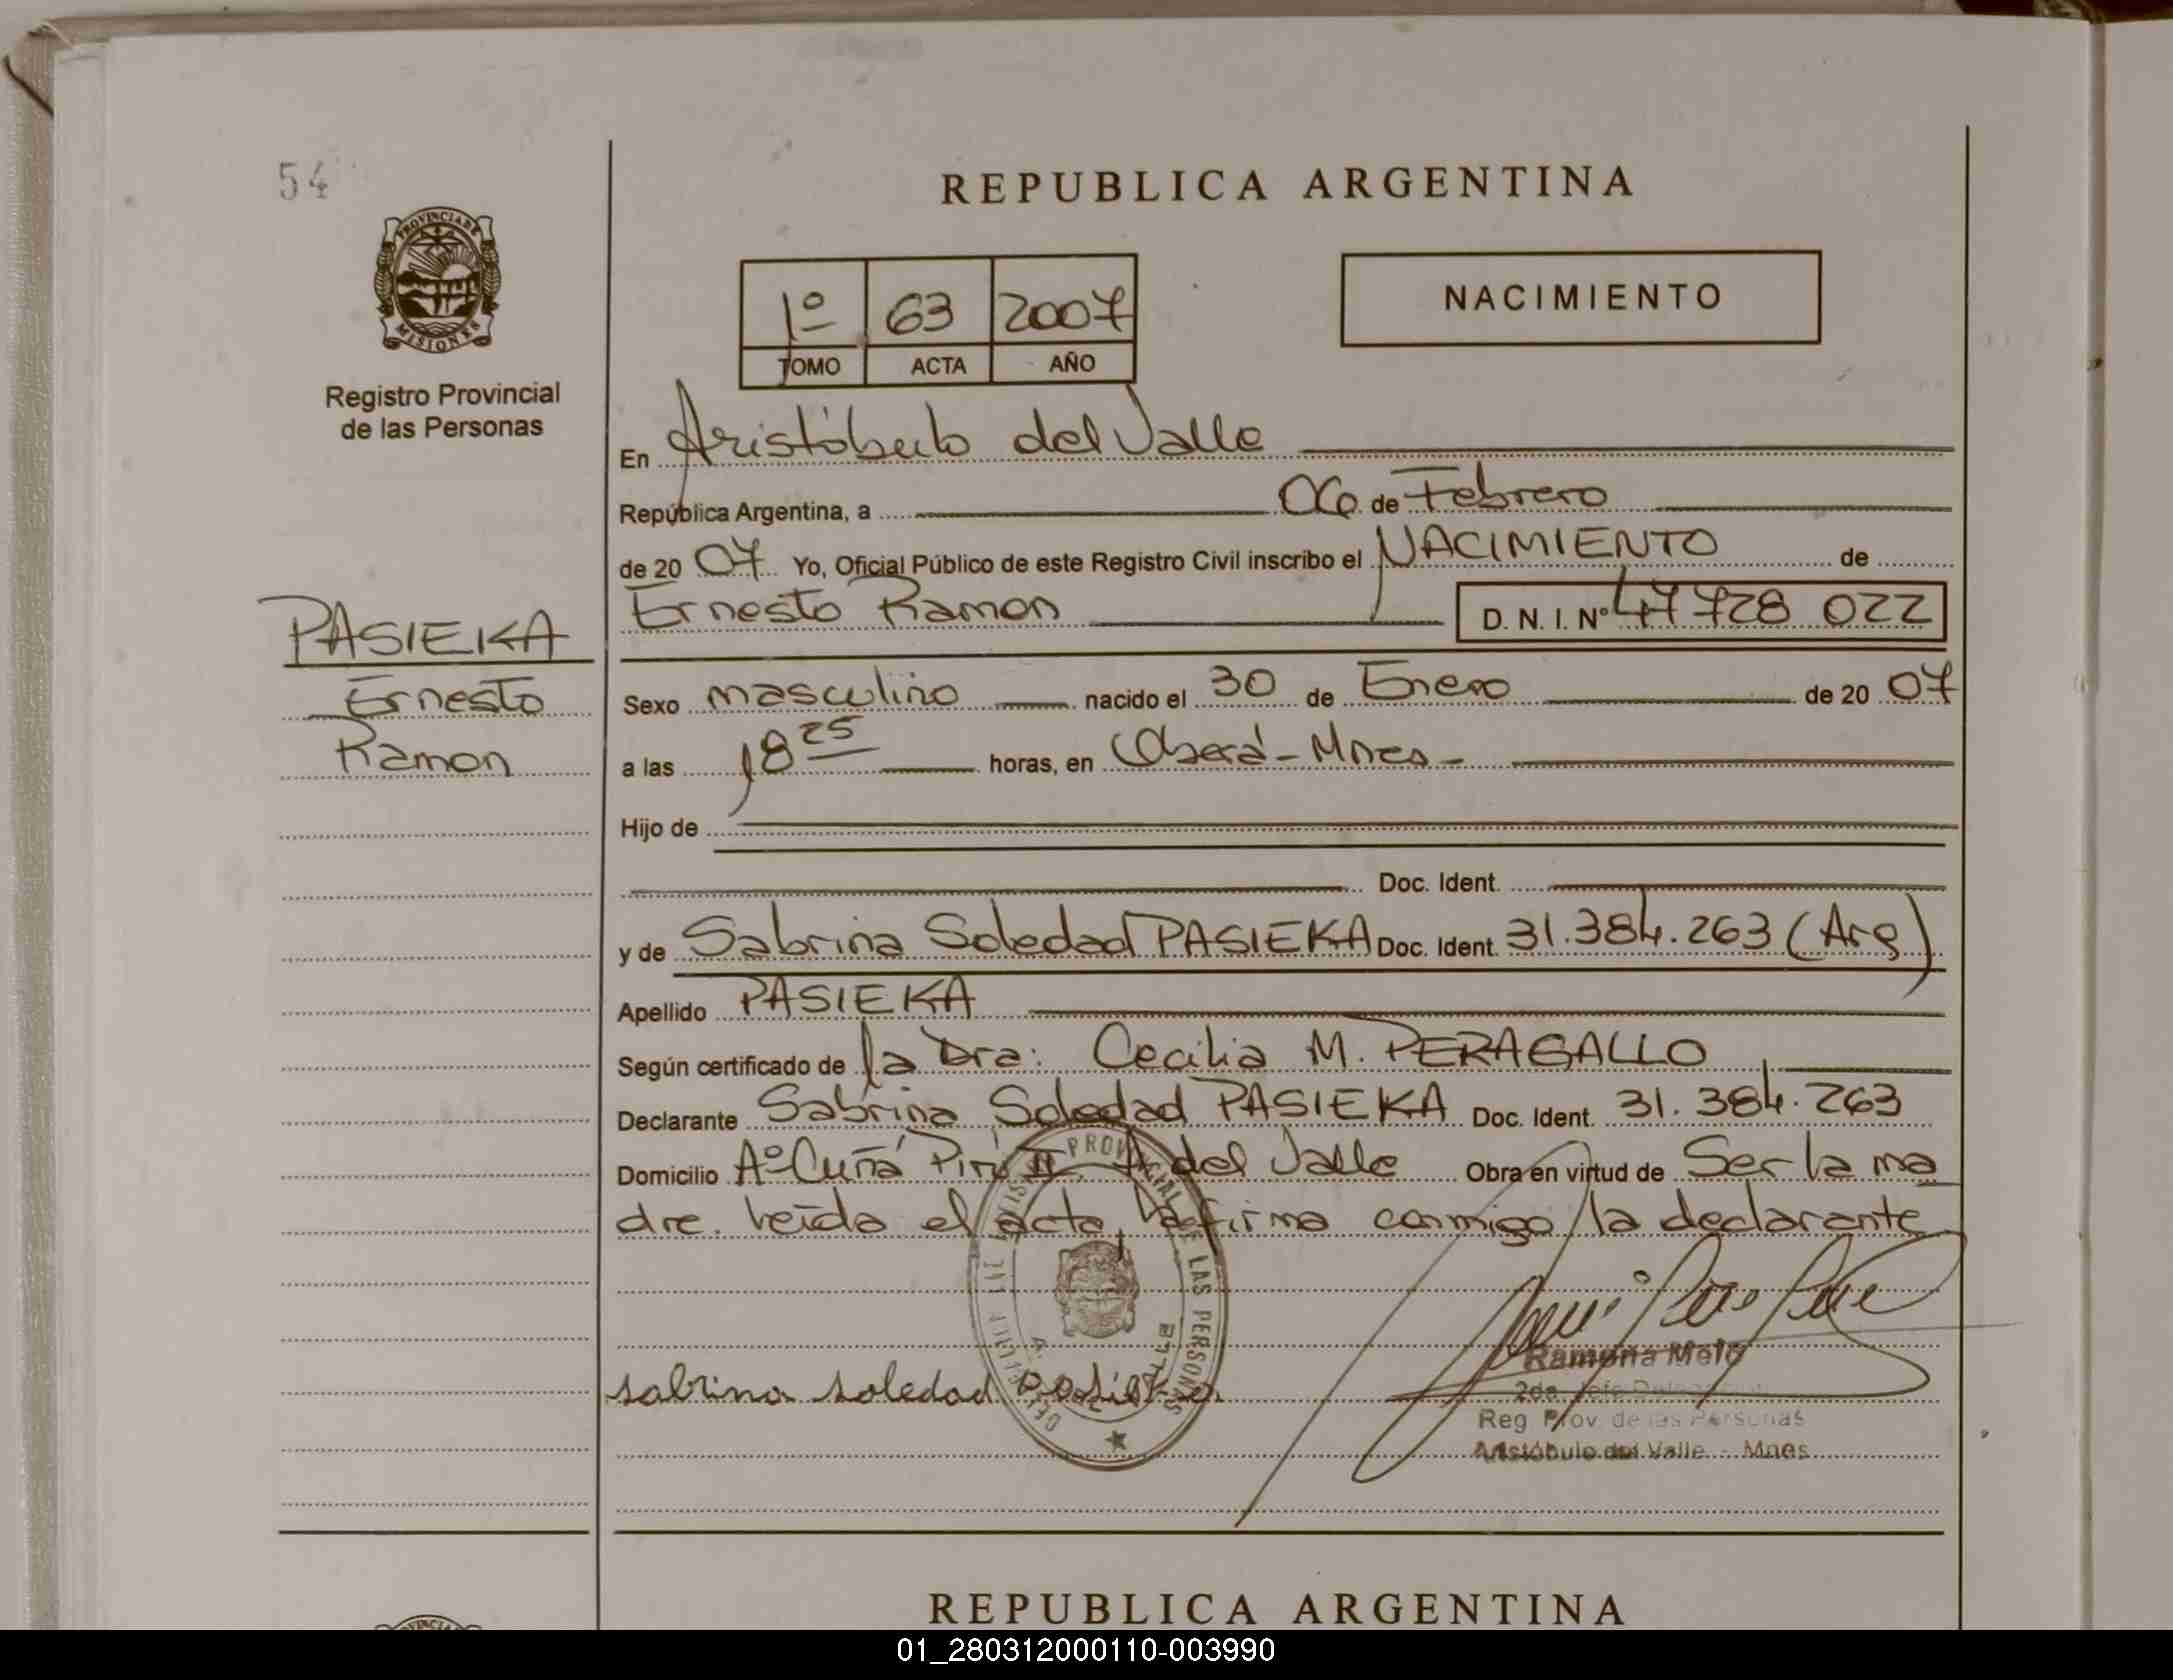 54
PROVINCIA DE
MISIONES
Registro Provincial
de las Personas
PASIEKA
Ernesto
Ramon
REPUBLICA ARGENTINA
1º 63 2007
TOMO ACTA AÑO
NACIMIENTO
En Aristóbulo del Valle
República Argentina, a 06 de Febrero
de 2007 Yo, Oficial Público de este Registro Civil inscribo el NACIMIENTO de
Ernesto Ramon D. N. I. Nº 47 728 022
Sexo masculino nacido el 30 de Enero de 2007
a las 18 25 horas, en Oberá - Mnes -
Hijo de
Doc. Ident.
y de Sabrina Soledad PASIEKA Doc. Ident. 31.384.263 (Arg)
Apellido PASIEKA
Según certificado de la Dra: Cecilia M. PERAGALLO
Declarante Sabrina Soledad PASIEKA Doc. Ident. 31.384.263
Domicilio Aº Cuñá Pirú II A del Valle Obra en virtud de Ser la ma
dre. leída el acta, la firma conmigo la declarante
PROVINCIAL DE LAS PERSONAS
sabrina soledad pasieka
Ramona Melo
2da. Jefe
Reg Prov. de las Personas
Aristóbulo del Valle - Mnes
REPUBLICA ARGENTINA
01_280312000110-003990